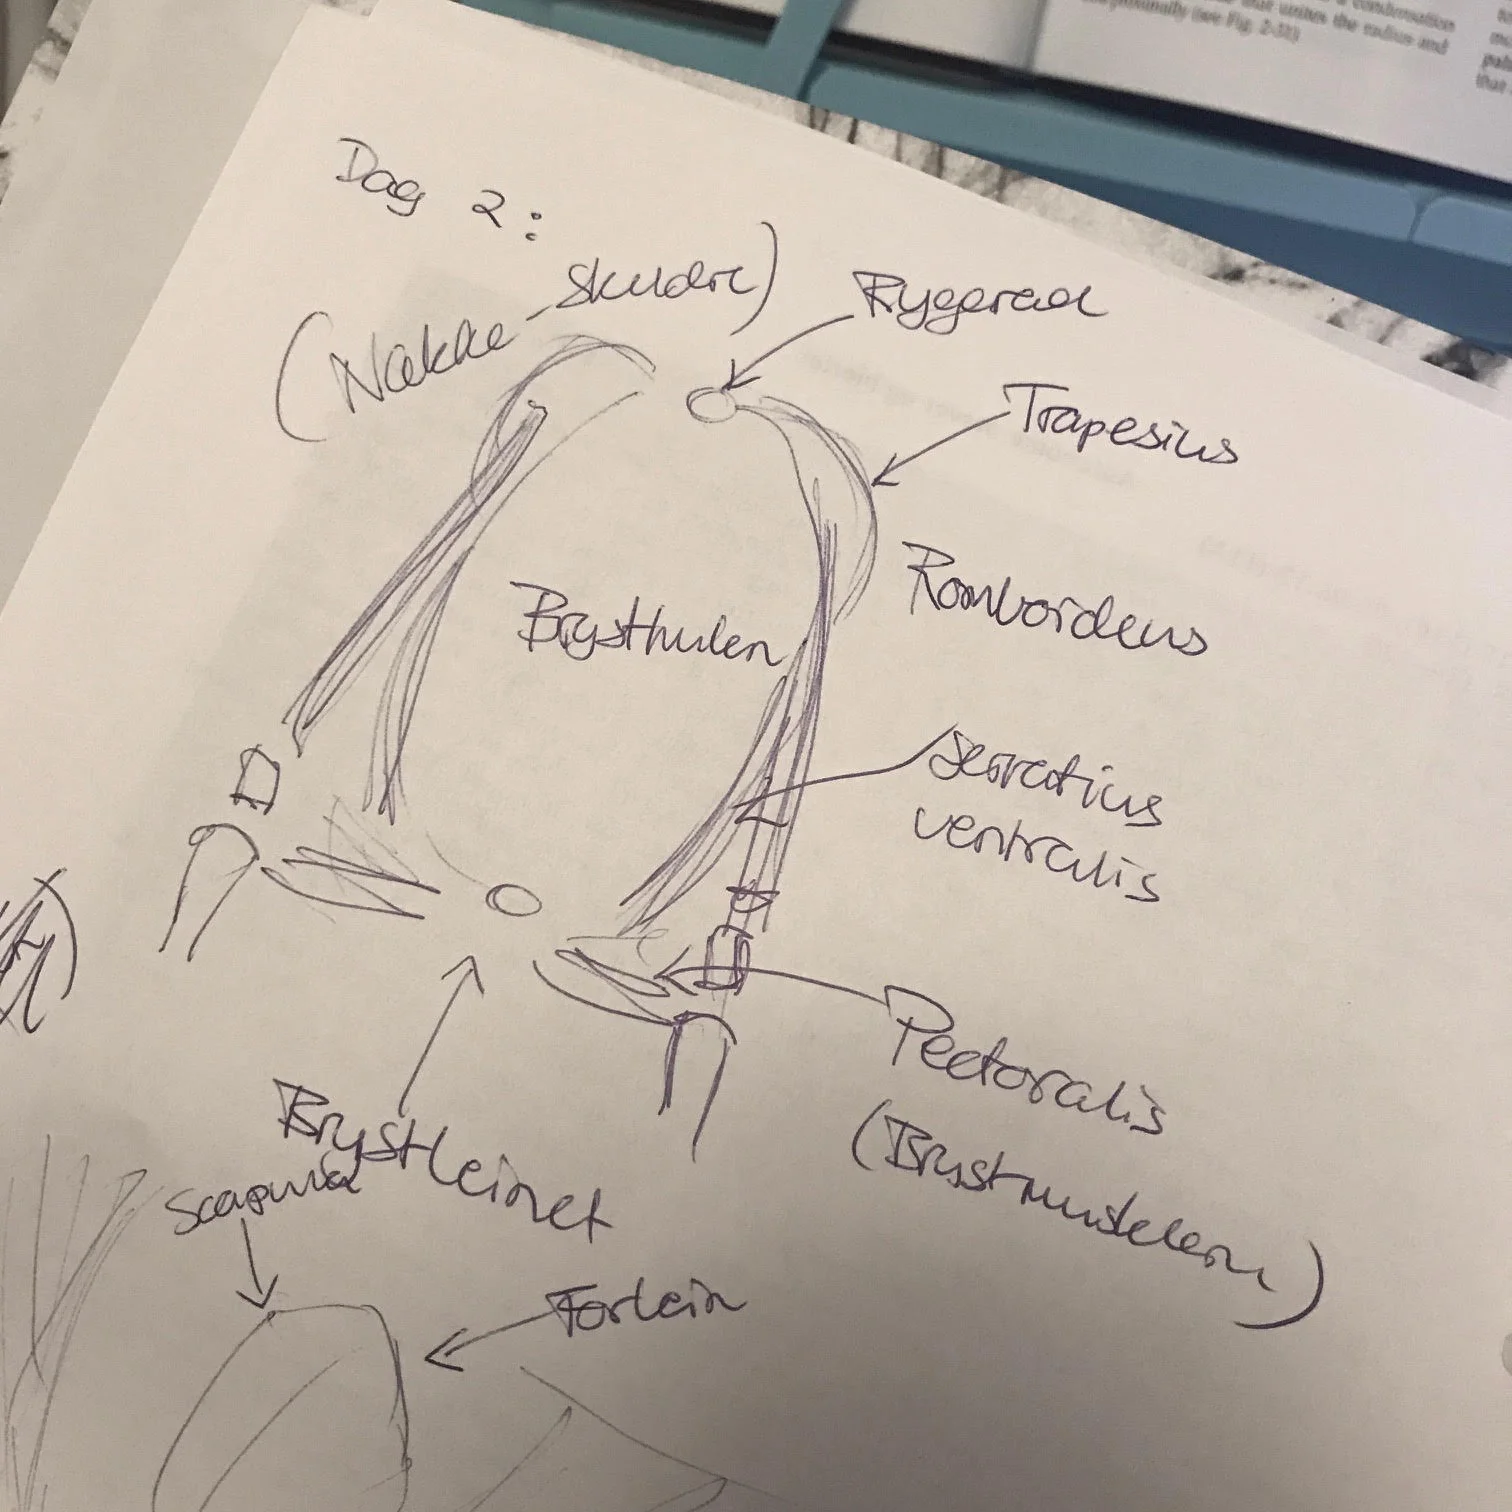 a condensation
that unites the radius and
proximally (see Fig. 2-31)
Dag 2:
(Nakke - skuldre)
Ryggrad
Trapesius
Romboideus
Brysthulen
Serratius
ventralis
Pectoralis
(Brystmuskelen)
Brystbeinet
Scapula
Forbein